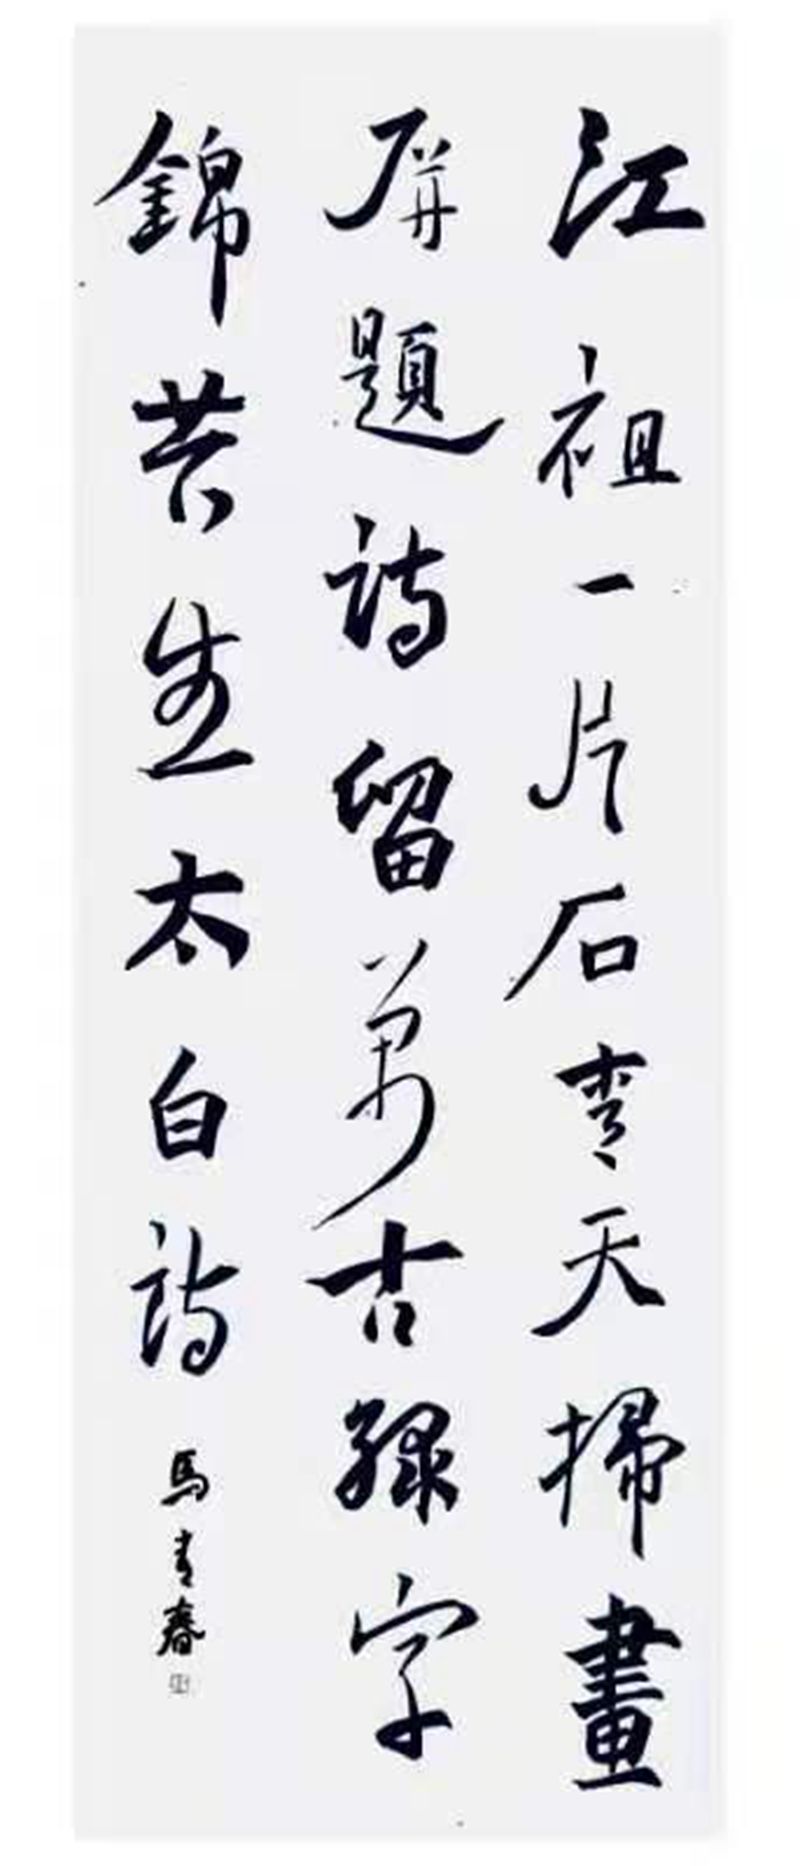 江祖一片石青天掃畫
屏題詩留萬古綠字
錦苔生太白詩
馬青春